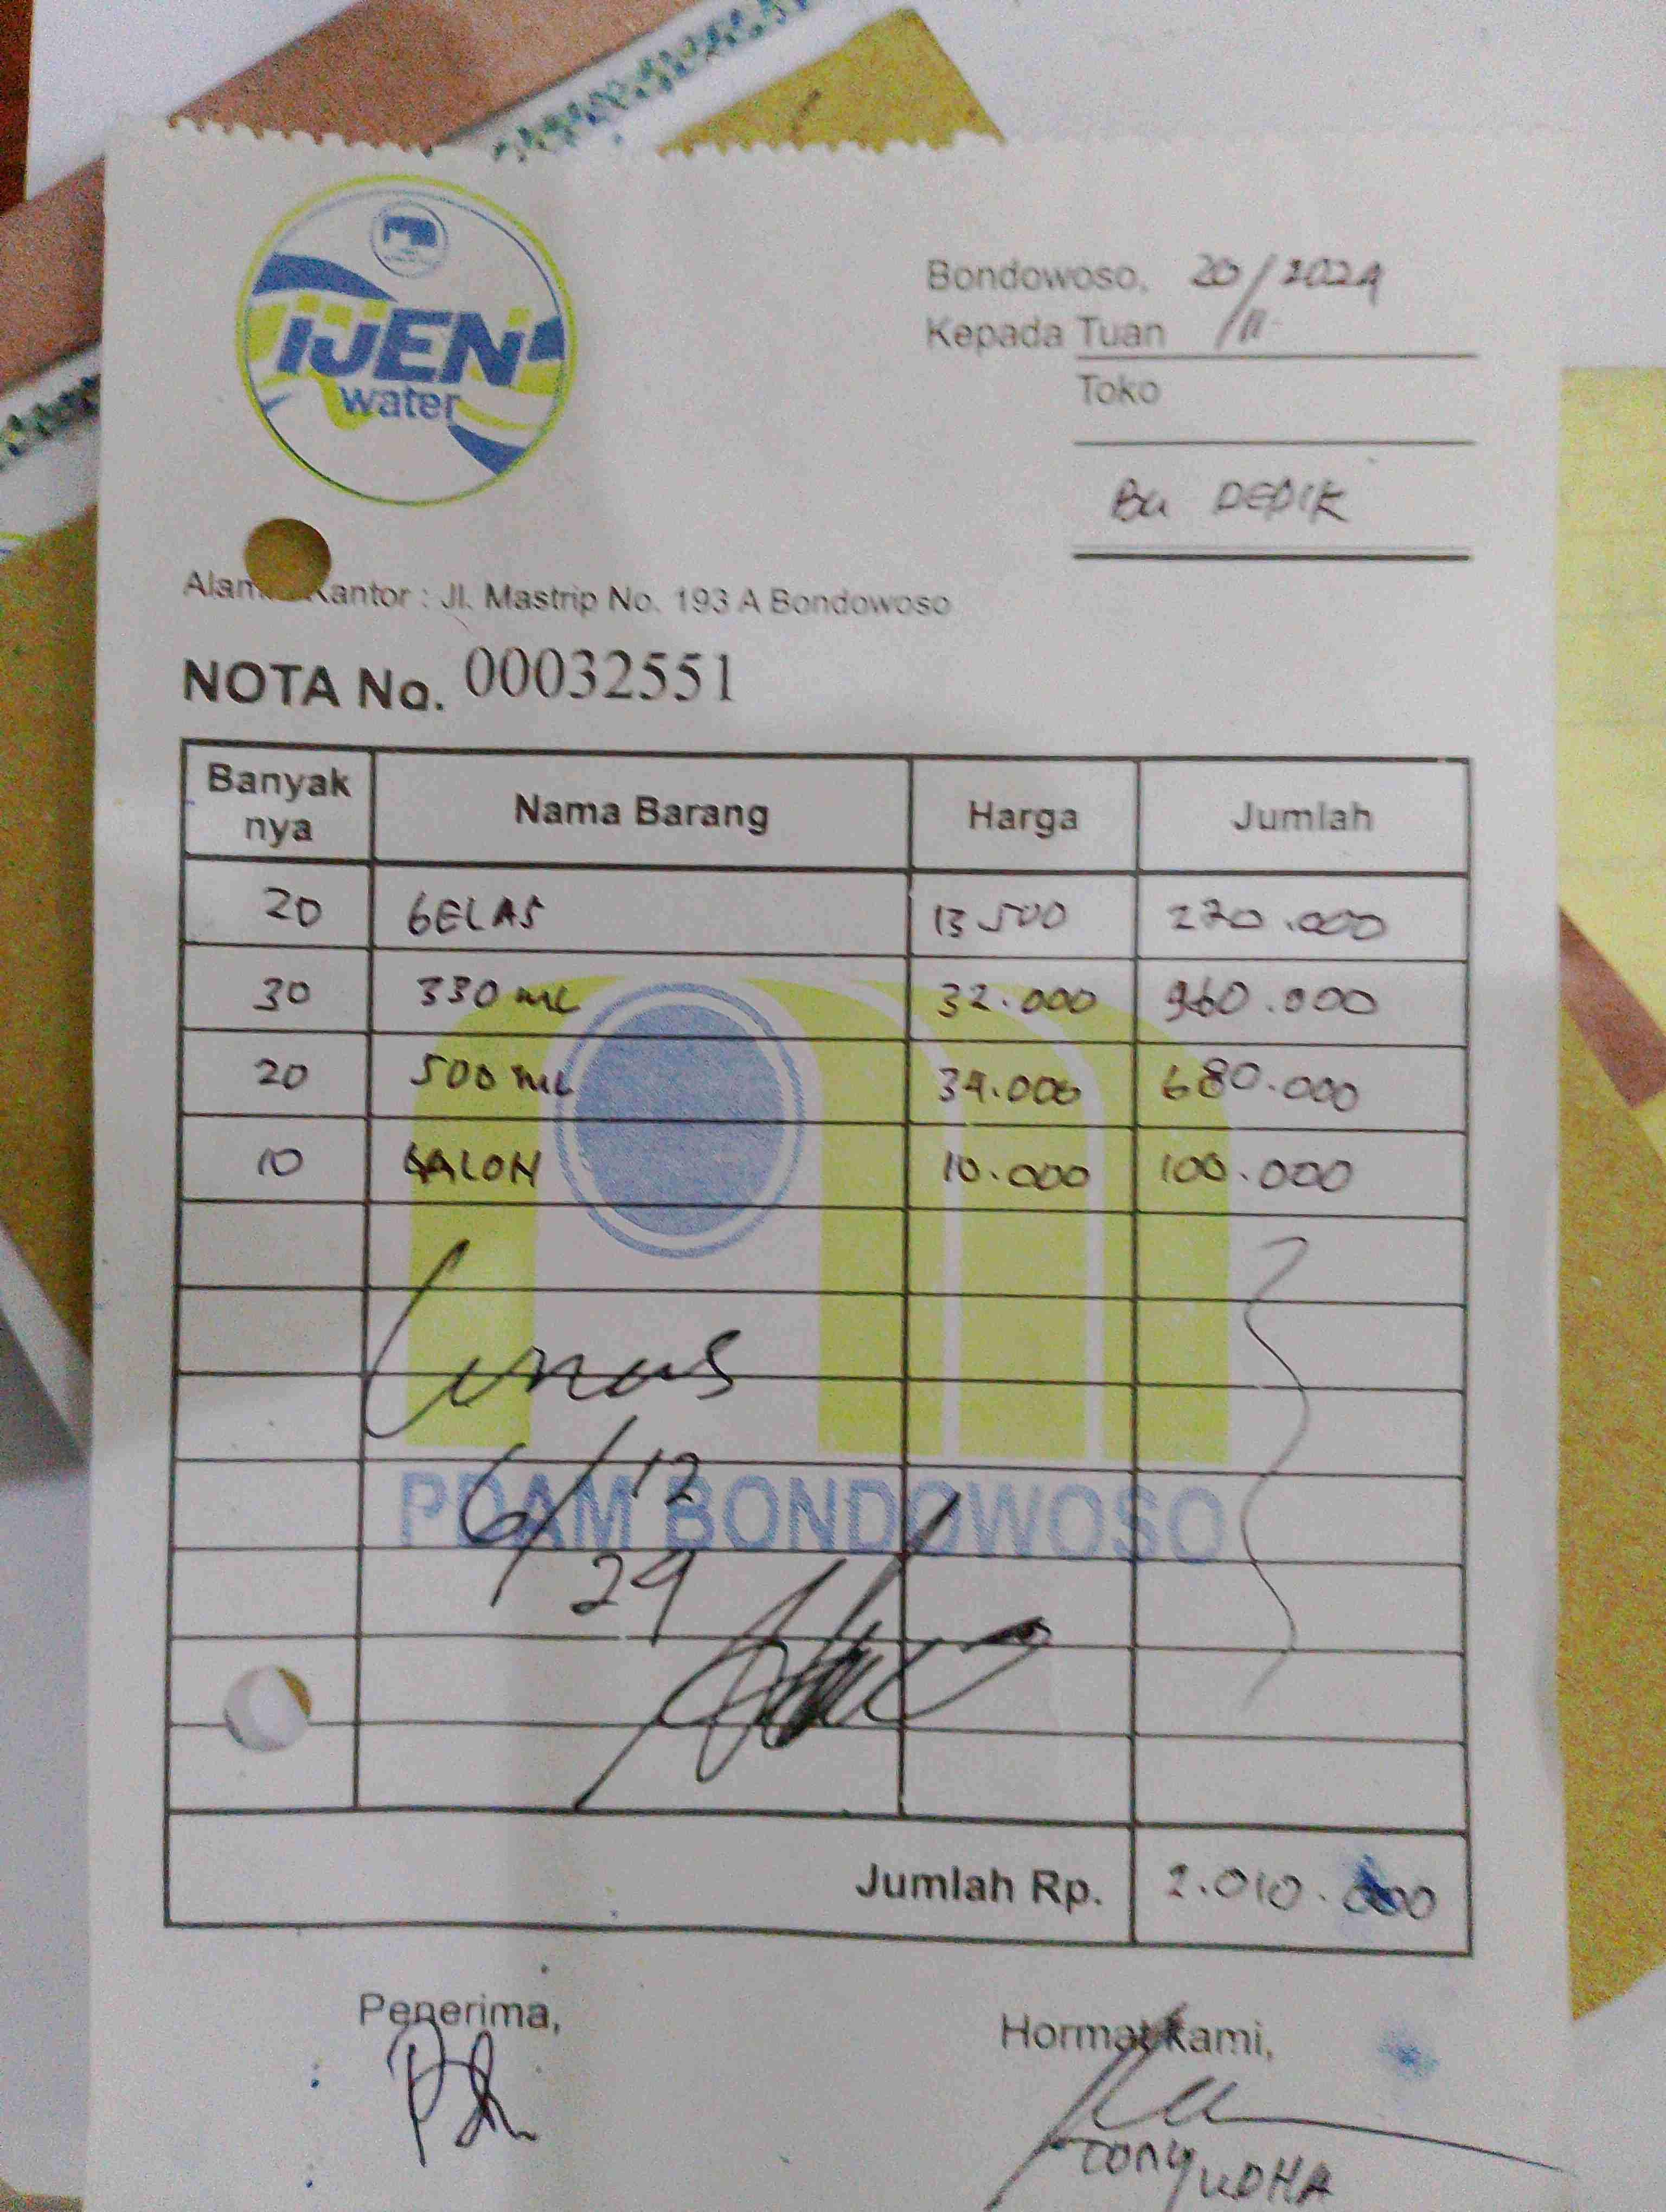 IJEN
water
Bondowoso, 20/11 2024
Kepada Tuan
Toko
Bu DEDIK
Kantor : Jl. Mastrip No. 193 A Bondowoso
NOTA No. 00032551
Banyak nya Nama Barang Harga Jumlah
20 GELAS 13.500 270.000
30 330 mL 32.000 960.000
20 500 mL 34.000 680.000
10 GALON 10.000 100.000
Lunas
6/12
24
PDAM BONDOWOSO
Jumlah Rp. 2.010.000
Penerima,
Hormat Kami,